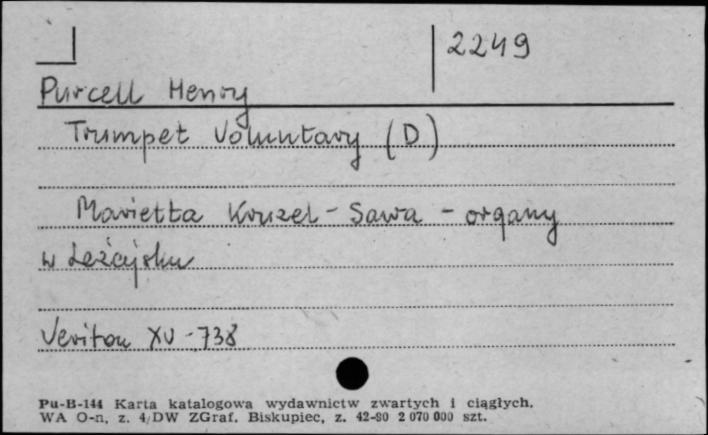 2249
Purcell Henry
Trumpet Voluntary (D)
Marietta Kruzel - Sawa - organy
w Leżajsku
Veriton XV - 738
Pu-B-144 Karta katalogowa wydawnictw zwartych i ciągłych.
WA O-n, z. 4/DW ZGraf. Biskupiec, z. 42-80 2 070 000 szt.